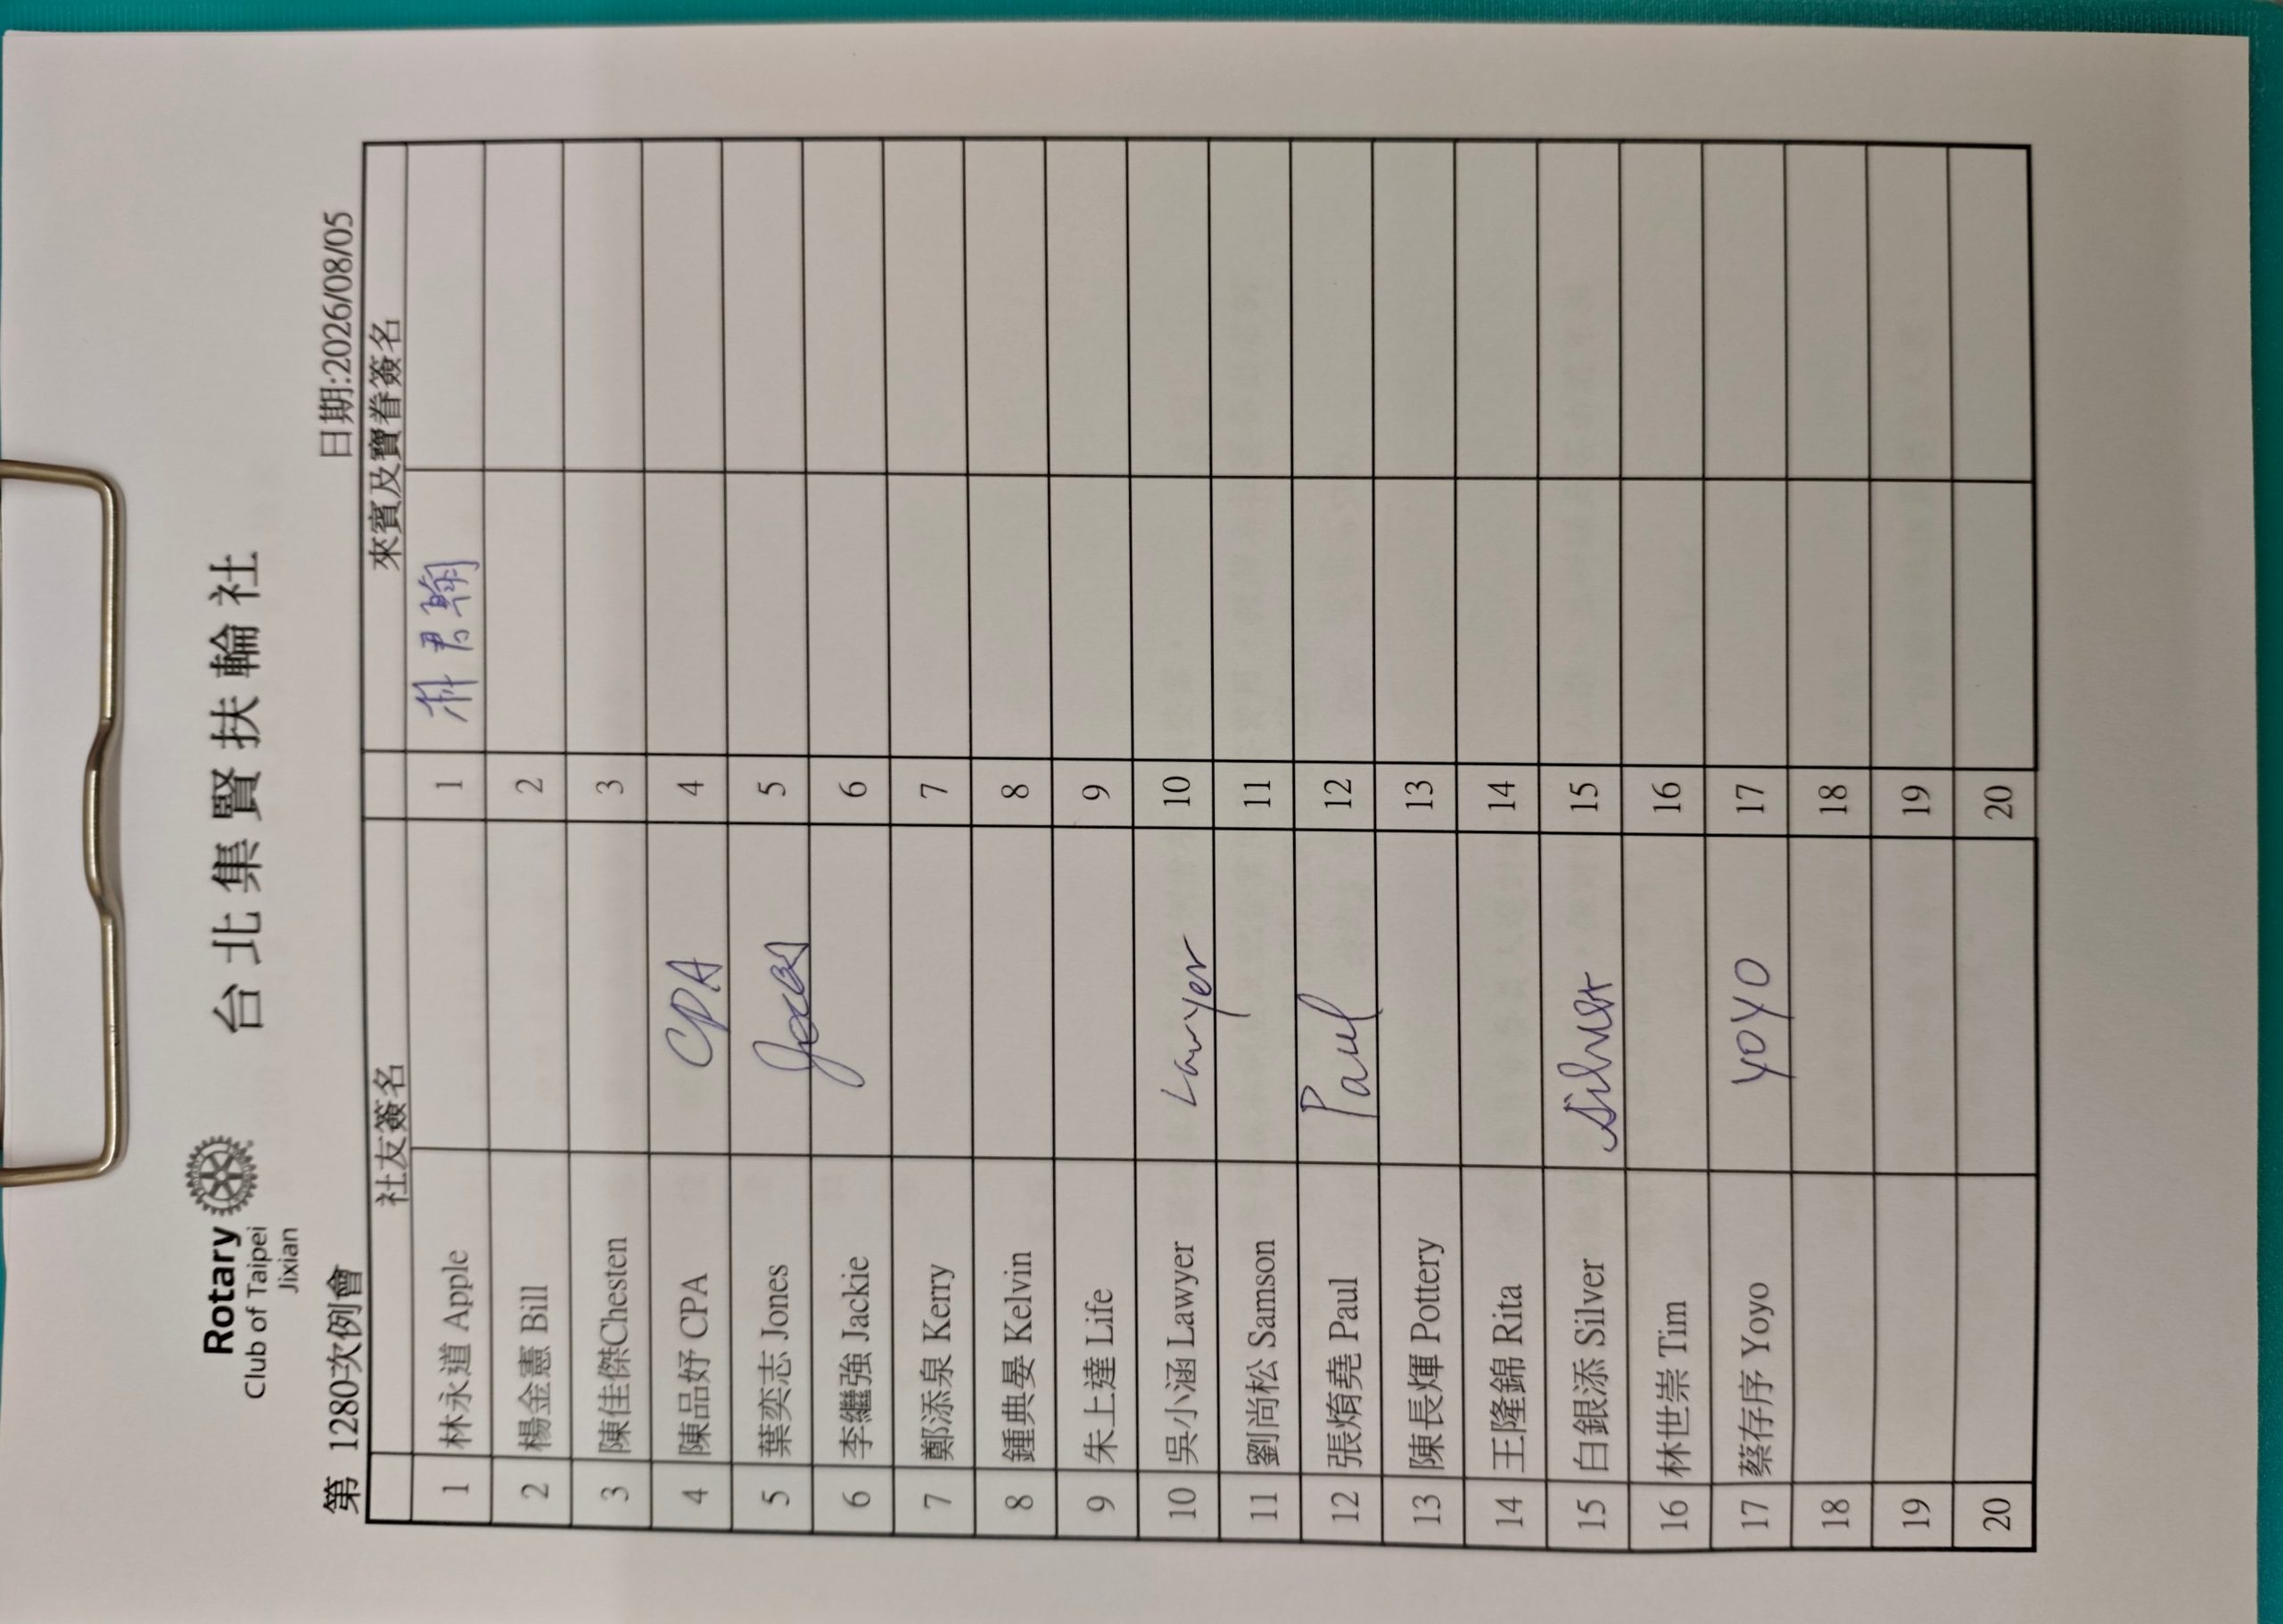 Rotary
Club of Taipei
Jixian
台北集賢扶輪社
第 1280次例會 日期:2026/08/05
社友簽名 來賓及寶眷簽名
1 林永道 Apple 1 君翰
2 楊金憲 Bill 2
3 陳佳傑Chesten 3
4 陳品妤 CPA CPA 4
5 葉奕志 Jones Jones 5
6 李繼強 Jackie 6
7 鄭添泉 Kerry 7
8 鍾典晏 Kelvin 8
9 朱上達 Life 9
10 吳小涵 Lawyer Lawyer 10
11 劉尚松 Samson 11
12 張焴堯 Paul Paul 12
13 陳長煇 Pottery 13
14 王隆錦 Rita 14
15 白銀添 Silver Silver 15
16 林世崇 Tim 16
17 蔡存序 Yoyo YOYO 17
18 18
19 19
20 20